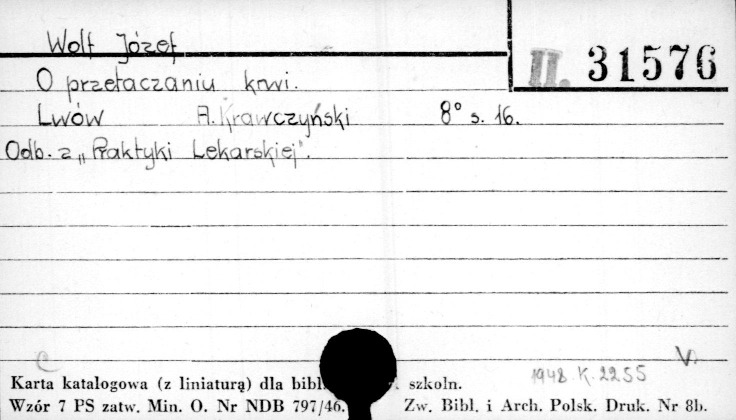 Wolf Józef
II. 31576
O przetaczaniu krwi.
Lwów A. Krawczyński 8° s. 16.
Odb. z „Praktyki Lekarskiej".
C V
1948. K. 2255
Karta katalogowa (z liniaturą) dla szkoln.
Wzór 7 PS zatw. Min. O. Nr NDB 797/46. Zw. Bibl. i Arch. Polsk. Druk. Nr 8b.